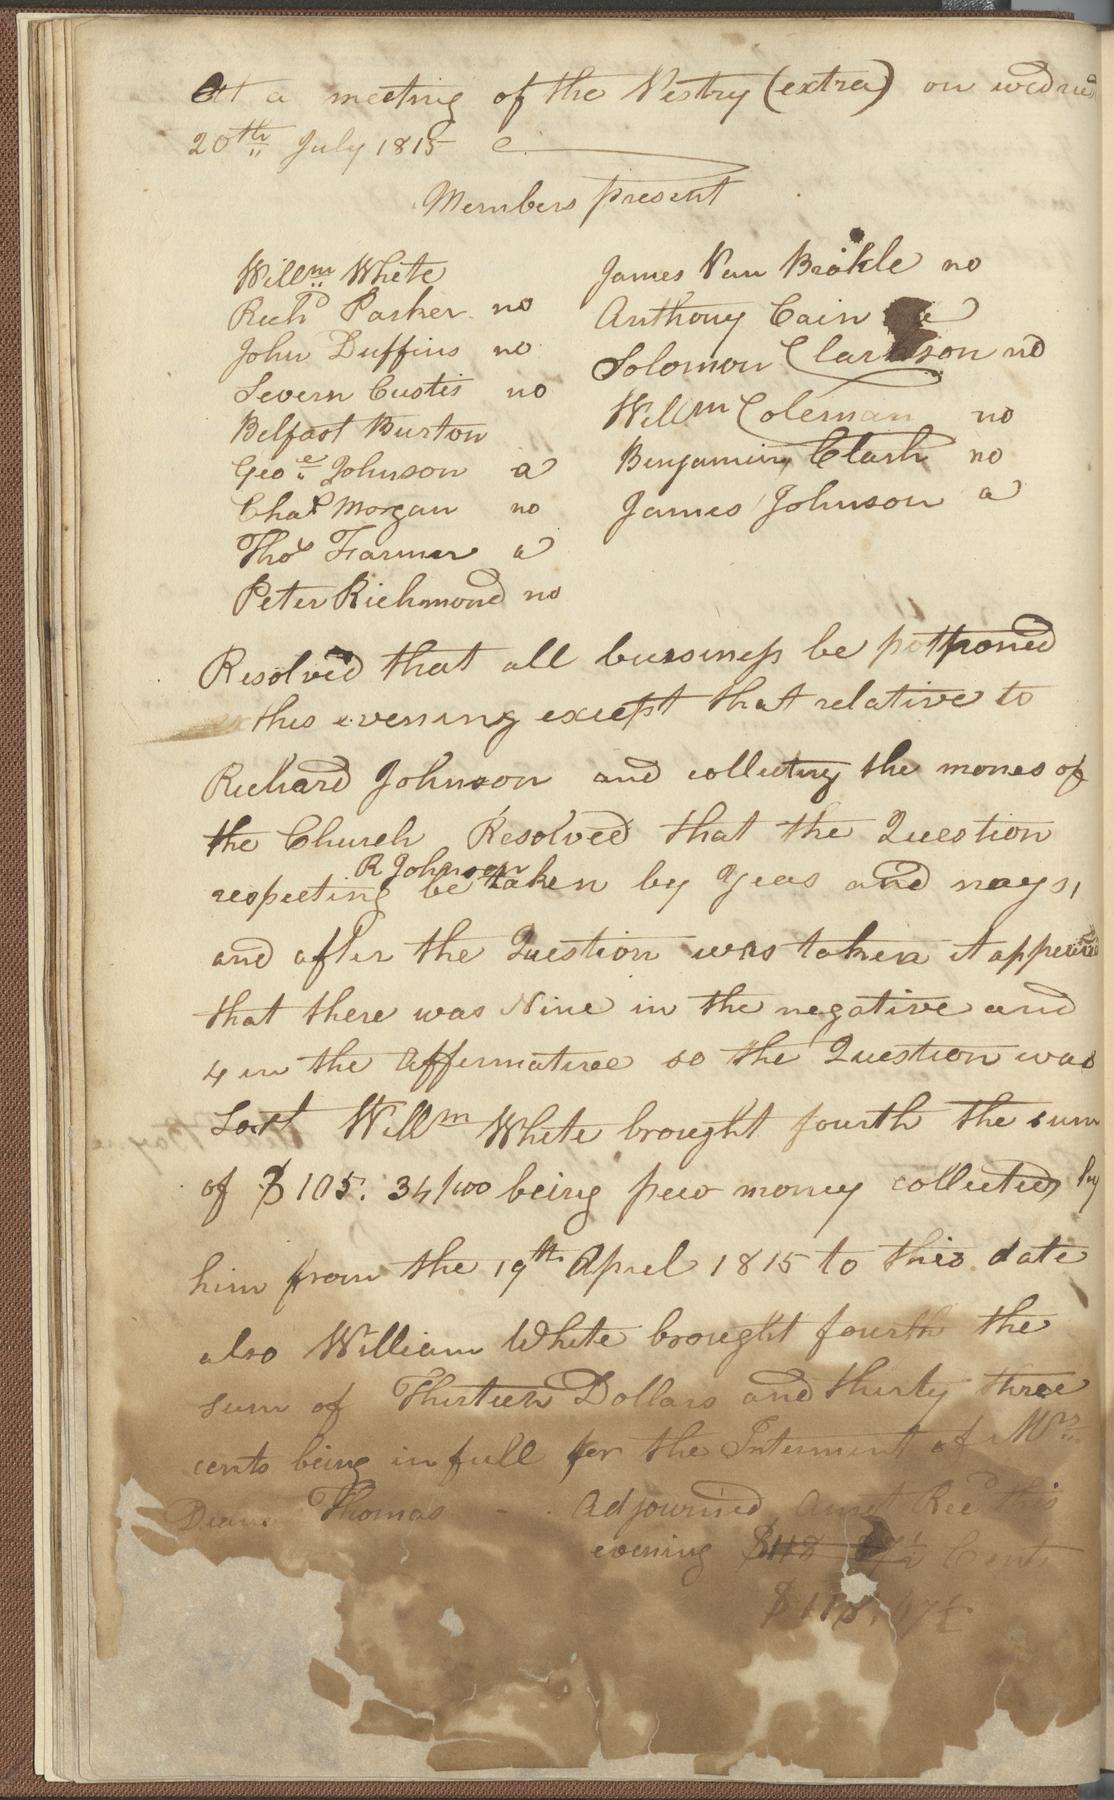 At a meeting of the Vestry (extra) on wednes
20th July 1815
Members present
Willm White
Richd Parker no
John Duffins no
Severn Custis no
Belfast Burton
Geoe Johnson a
Chas Morgan no
Thos Farmer a
Peter Richmond no
James Van Brakle no
Anthony Cain a
Solomon Clarkson no
Willm Coleman no
Benjamin Clark no
James Johnson a
Resolved that all bussiness be postponed
this evening except that relative to
Richard Johnson and collecting the mones of
the Church Resolved that the Question
respecting R Johnson be taken by Yeas and nays,
and after the Question was taken it appeared
that there was Nine in the negative and
4 in the affermative so the Question was
Lost Willm White brought fourth the sum
of $105. 34/100 being pew money collected by
him from the 19th Aprel 1815 to this date
also William White brought fourth the
sum of Thirteen Dollars and thirty three
cents being in full for the Interment of Mrs
Thomas - . Adjourned Amt Recd this
evening $118 Cents